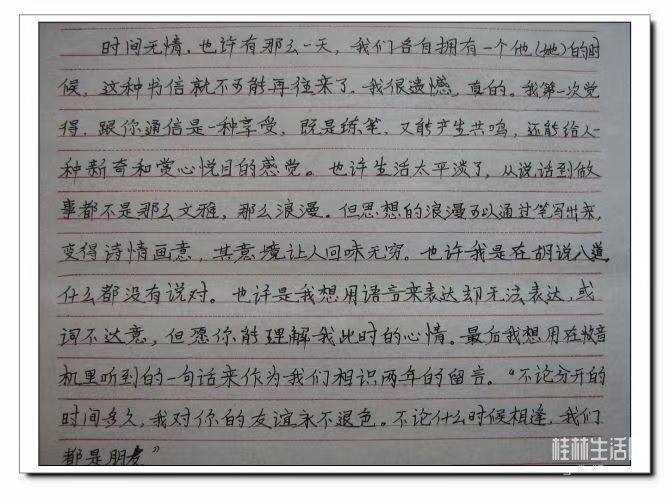 时间无情，也许有那么一天，我们各自拥有一个他（她）的时
候，这种书信就不可能再往来了，我很遗憾，真的。我第一次觉
得，跟你通信是一种享受，既是练笔，又能产生共鸣，还能给人一
种新奇和赏心悦目的感觉。也许生活太平淡了，从说话到做
事都不是那么文雅，那么浪漫。但思想的浪漫可以通过笔写出来，
变得诗情画意，其意境让人回味无穷。也许我是在胡说八道，
什么都没有说对。也许是我想用语言来表达却无法表达，或
词不达意，但愿你能理解我此时的心情。最后我想用在收音
机里听到的一句话来作为我们相识两年的留言。“不论分开的
时间多久，我对你的友谊永不退色。不论什么时候相逢，我们
都是朋友”
桂林生活